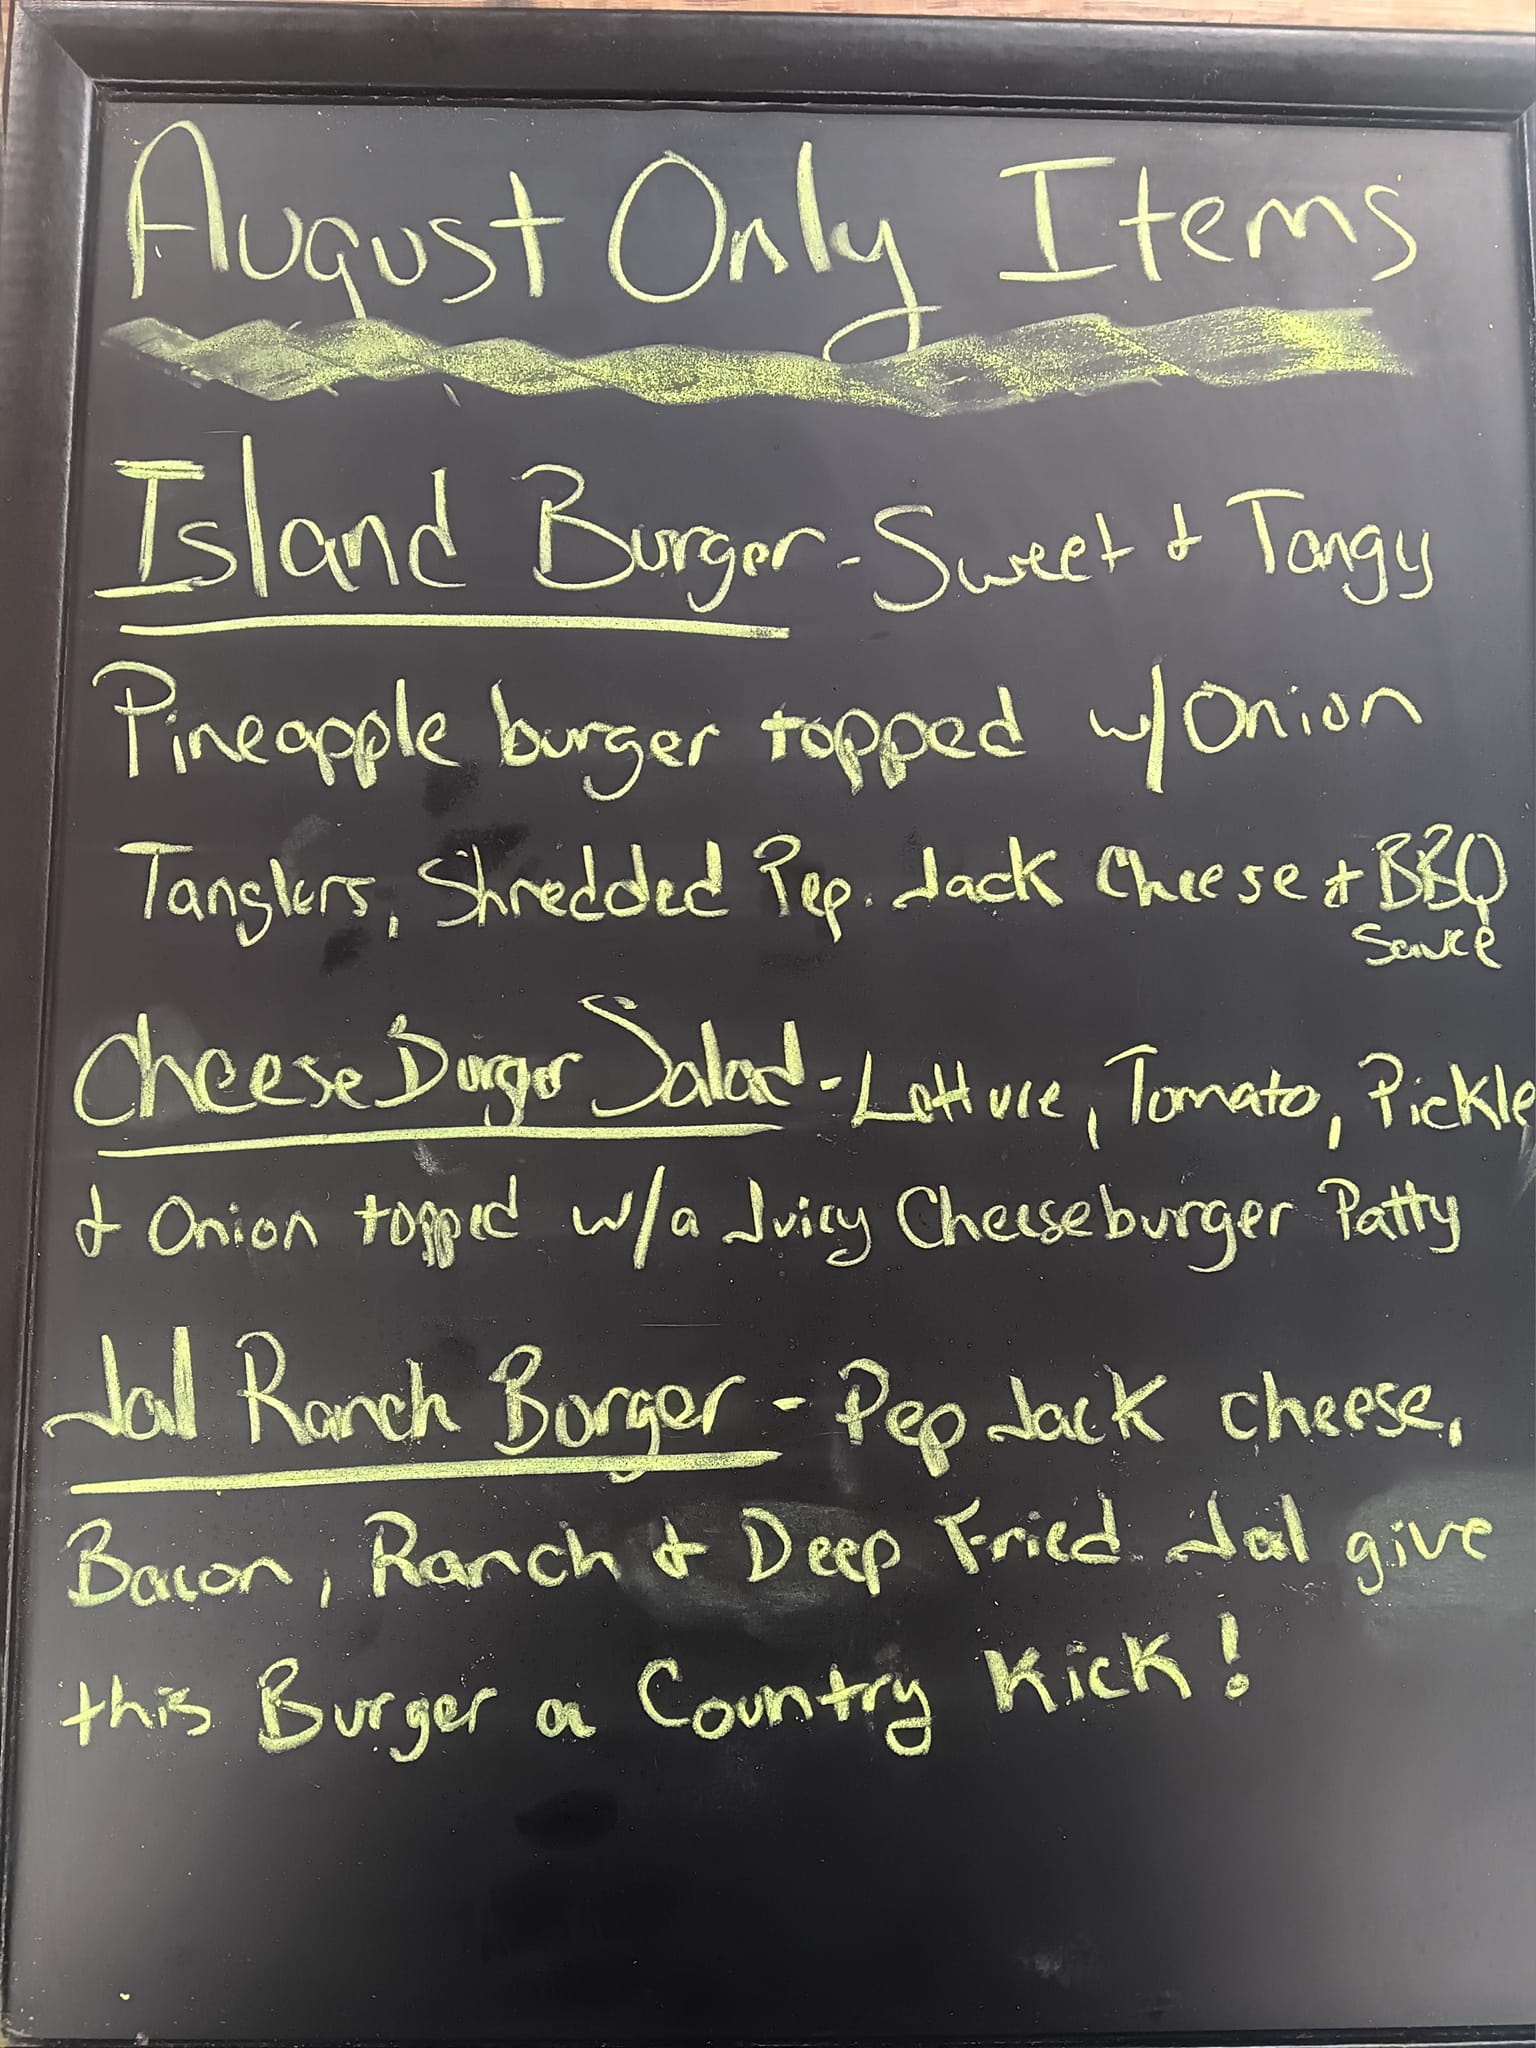 August Only Items
Island Burger - Sweet & Tangy
Pineapple burger topped w/Onion
Tanglers, Shredded Pep. Jack Cheese & BBQ
Sauce
Cheese Burger Salad - Lettuce, Tomato, Pickle
& Onion topped w/a Juicy Cheeseburger Patty
Jal Ranch Burger - Pep Jack cheese,
Bacon, Ranch & Deep Fried Jal give
this Burger a Country Kick!